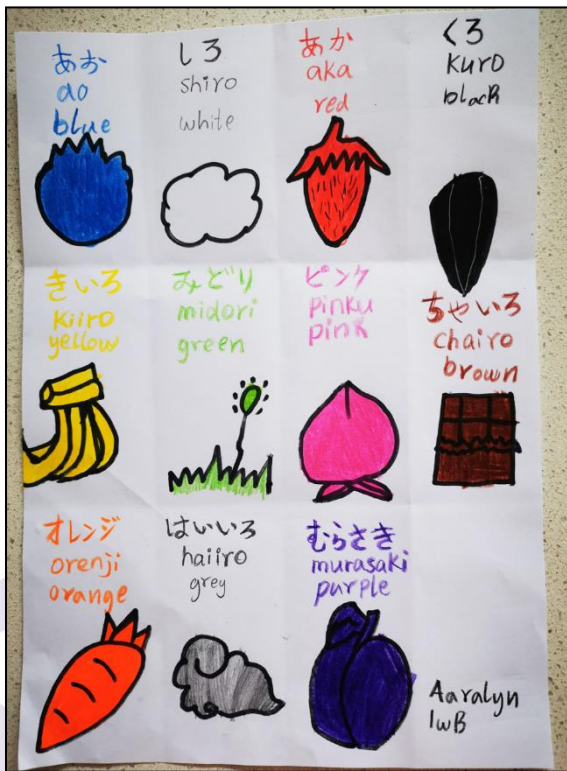 あお
ao
blue
しろ
shiro
white
あか
aka
red
くろ
kuro
black
きいろ
kiiro
yellow
みどり
midori
green
ピンク
pinku
pink
ちゃいろ
chairo
brown
オレンジ
orenji
orange
はいいろ
haiiro
grey
むらさき
murasaki
purple
Aaralyn
1wB